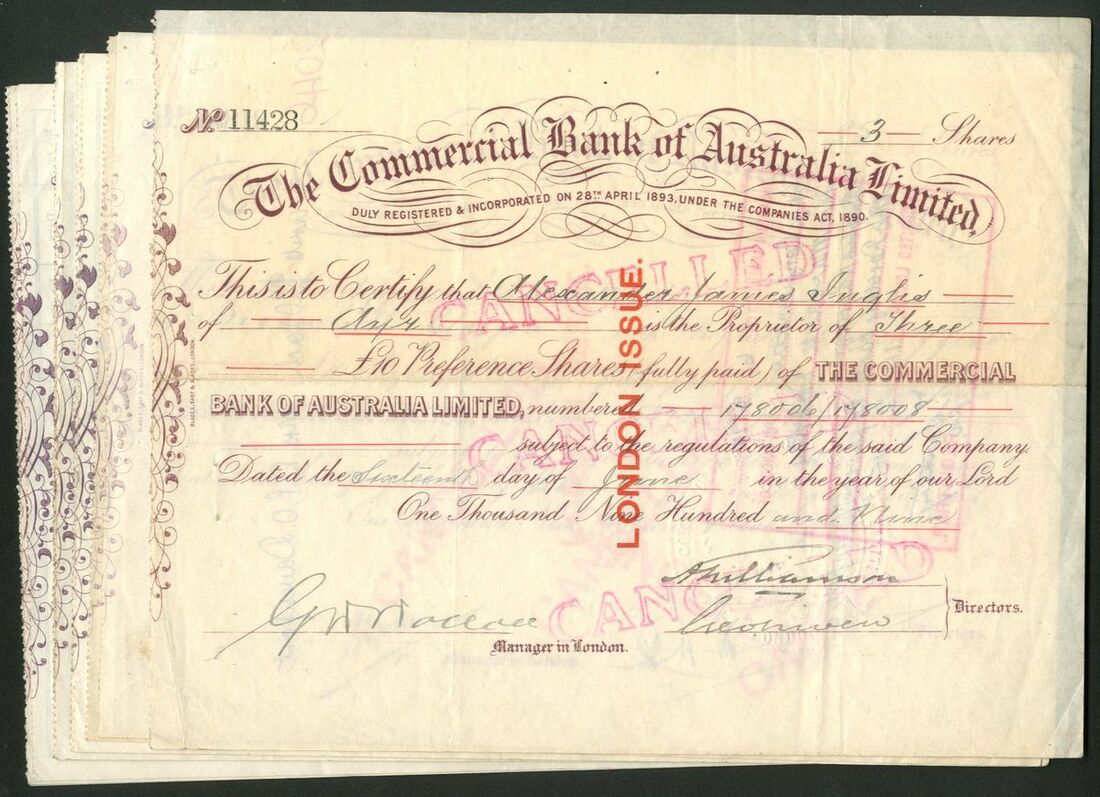 No. 11428
3 Shares
The Commercial Bank of Australia Limited,
DULY REGISTERED & INCORPORATED ON 28TH APRIL 1893, UNDER THE COMPANIES ACT, 1890.
This is to Certify that Alexander James Inglis
of Ayr is the Proprietor of Three
£10 Preference Shares (fully paid) of THE COMMERCIAL
BANK OF AUSTRALIA LIMITED, numbered 178006/178008
subject to the regulations of the said Company.
Dated the Sixteenth day of June in the year of our Lord
One Thousand Nine Hundred and Nine
LONDON ISSUE.
CANCELLED
CANCELLED
CANCELLED
Directors.
Manager in London.